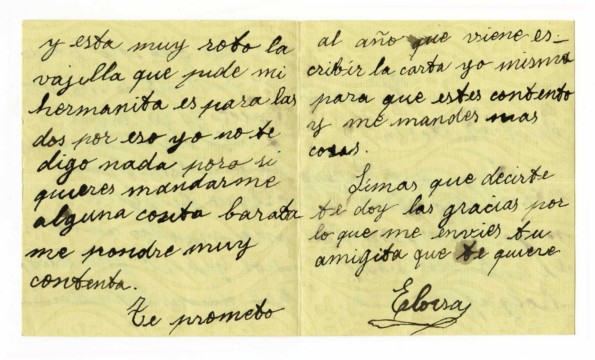 y esta muy roto la
vajilla que pide mi
hermanita es para las
dos por eso yo no te
digo nada pero si
quieres mandarme
alguna cosita barata
me pondre muy
contenta.
Te prometo
al año que viene es-
cribir la carta yo misma
para que estes contento
y me mandes mas
cosas.
Simas que decirte
te doy las gracias por
lo que me envies tu
amigita que te quiere
Eloisa